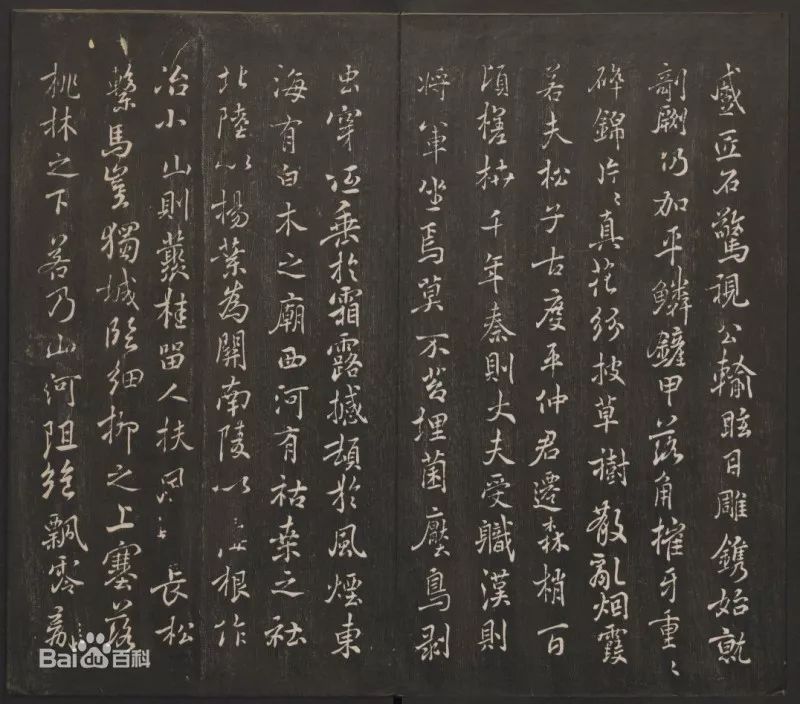 蹙匠石驚視公輸眩目雕鐫始就
剞劂仍加平鱗鏟甲落角摧牙重〻
碎錦片〻真花紛披草樹散亂烟霞
若夫松子古度平仲君遷森梢百
頃槎枿千年秦則大夫受職漢則
将軍坐焉莫不苔埋菌壓鳥剥
虫穿低垂於霜露撼頓於風煙東
海有白木之廟西河有枯桒之社
北陸以揚葉為關南陵以梅根作
冶小山則藂桂留人扶長松
繫馬豈獨城臨細柳之上塞落
桃林之下若乃山河阻絶飄零離
Bai百科